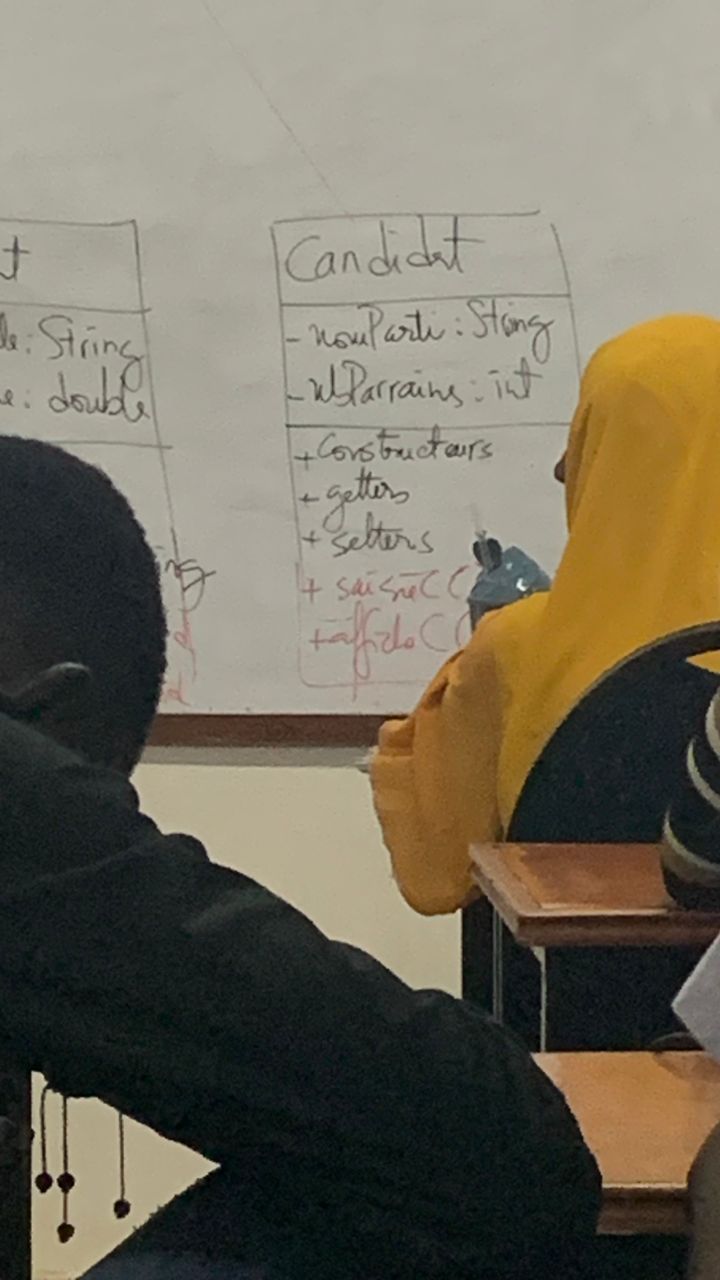 t
le: String
e: double
ng
Candidat
- nomParti : String
- nbParrains : int
+ Constructeurs
+ getters
+ setters
+ saisie( (